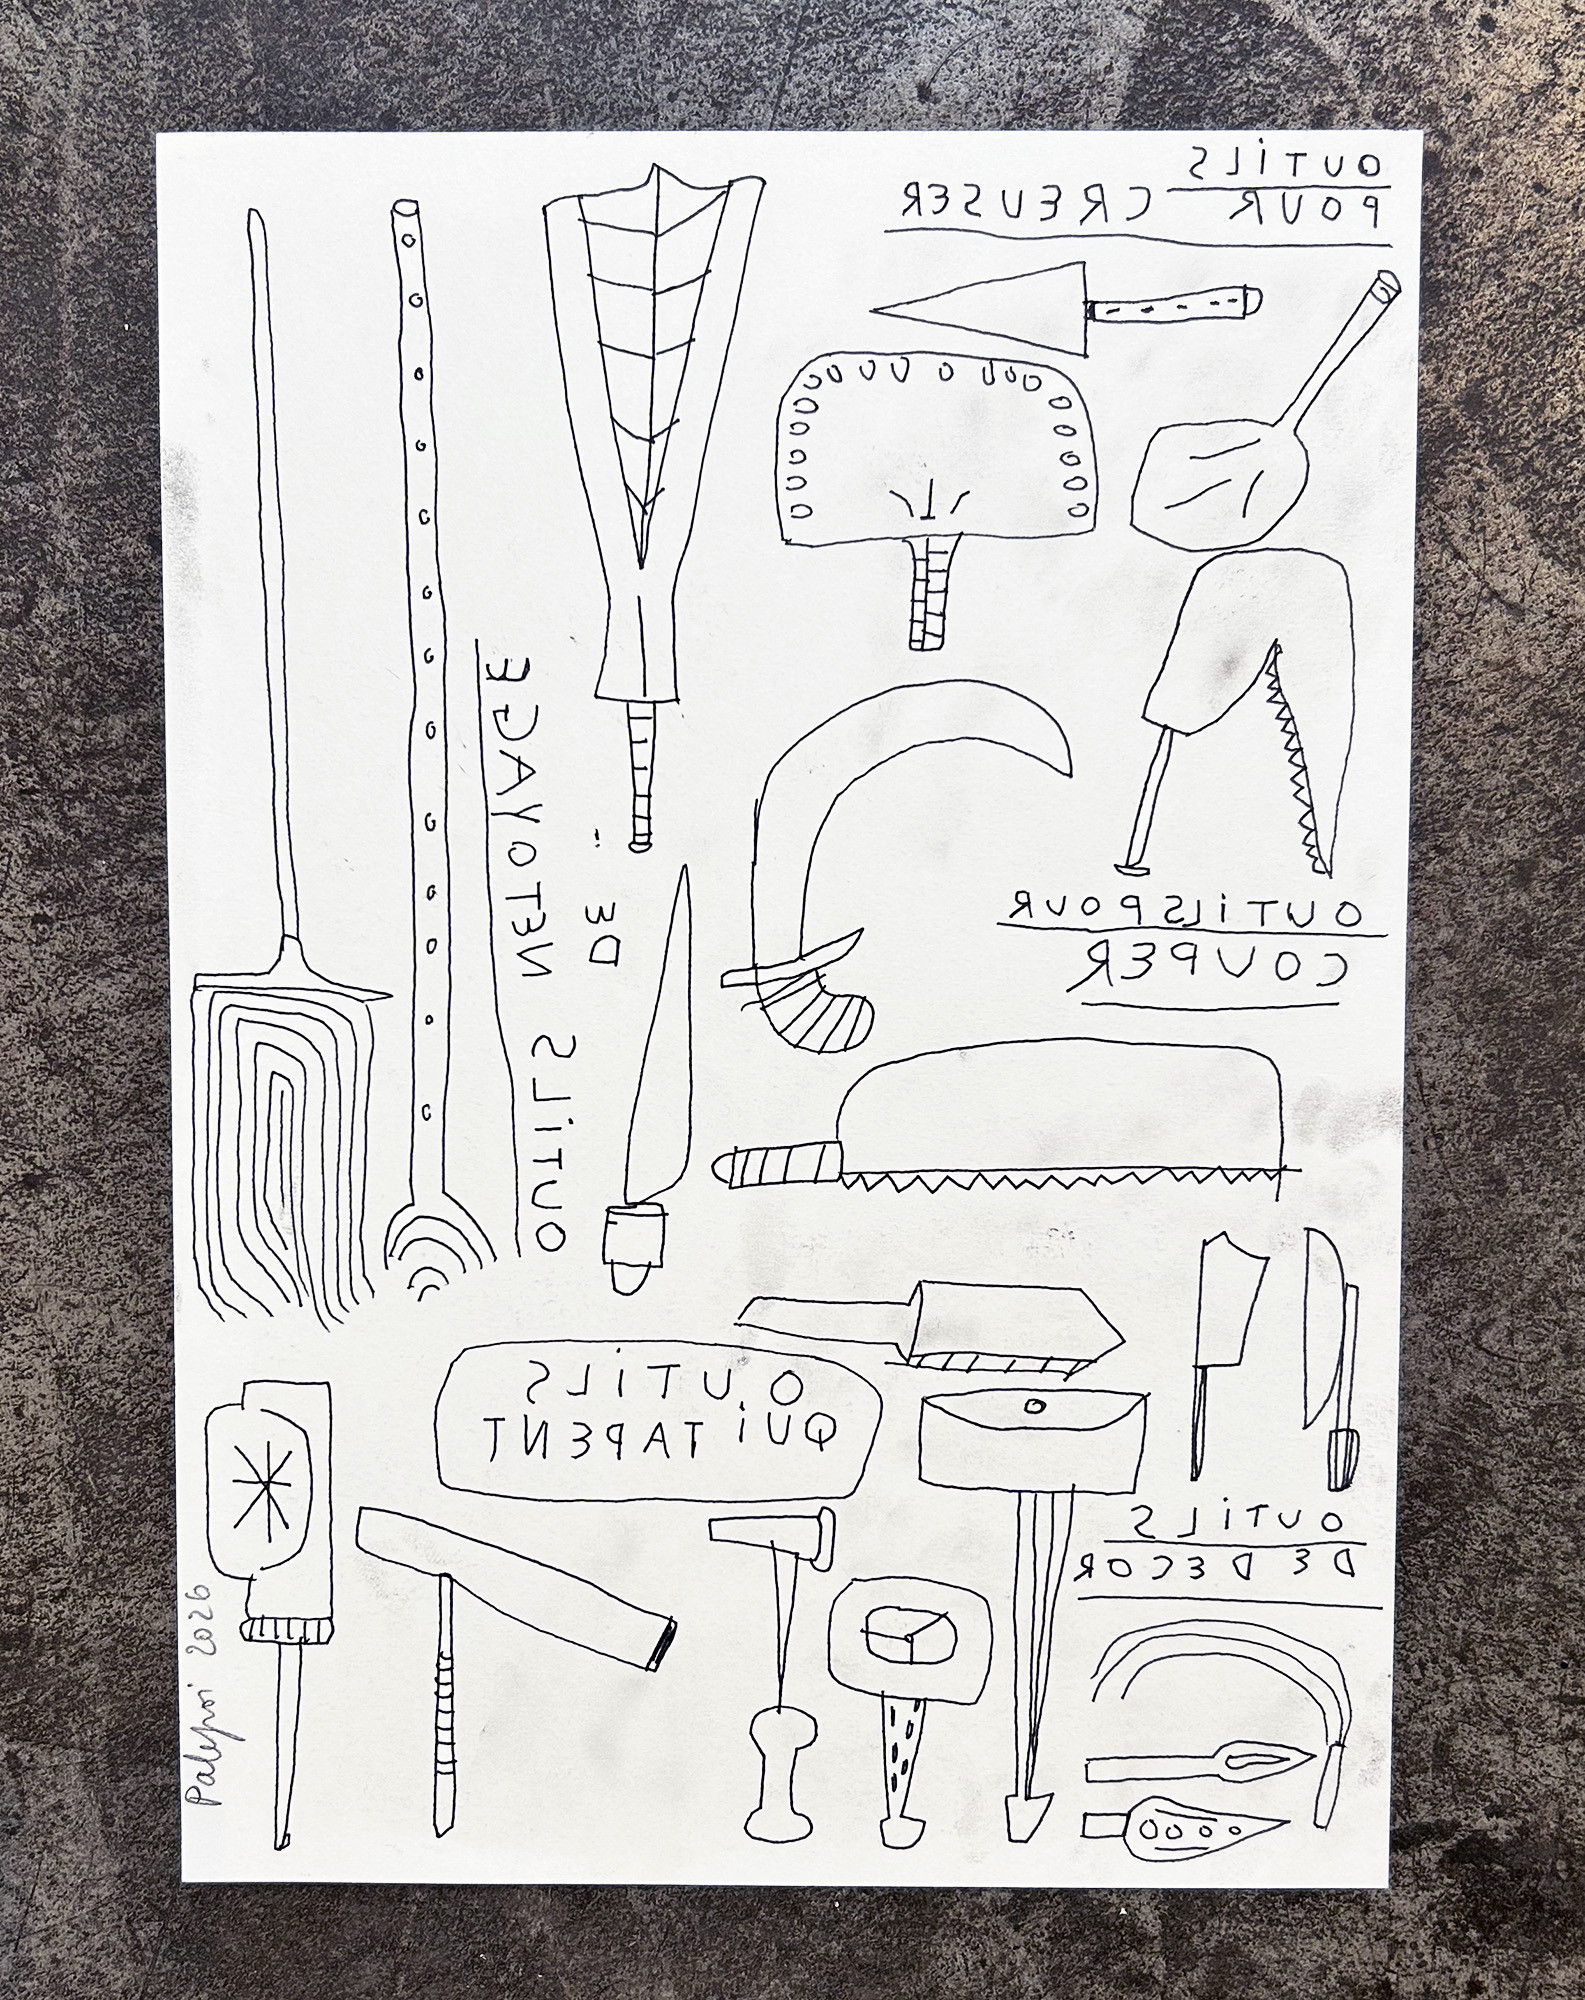 OUTiLS
POUR CREUSER
OUTiLS DE NETOYAGE
OUTiLSPOUR
COUPER
OUTiLS
QUi TAPENT
OUTiLS
DE DECOR
2026